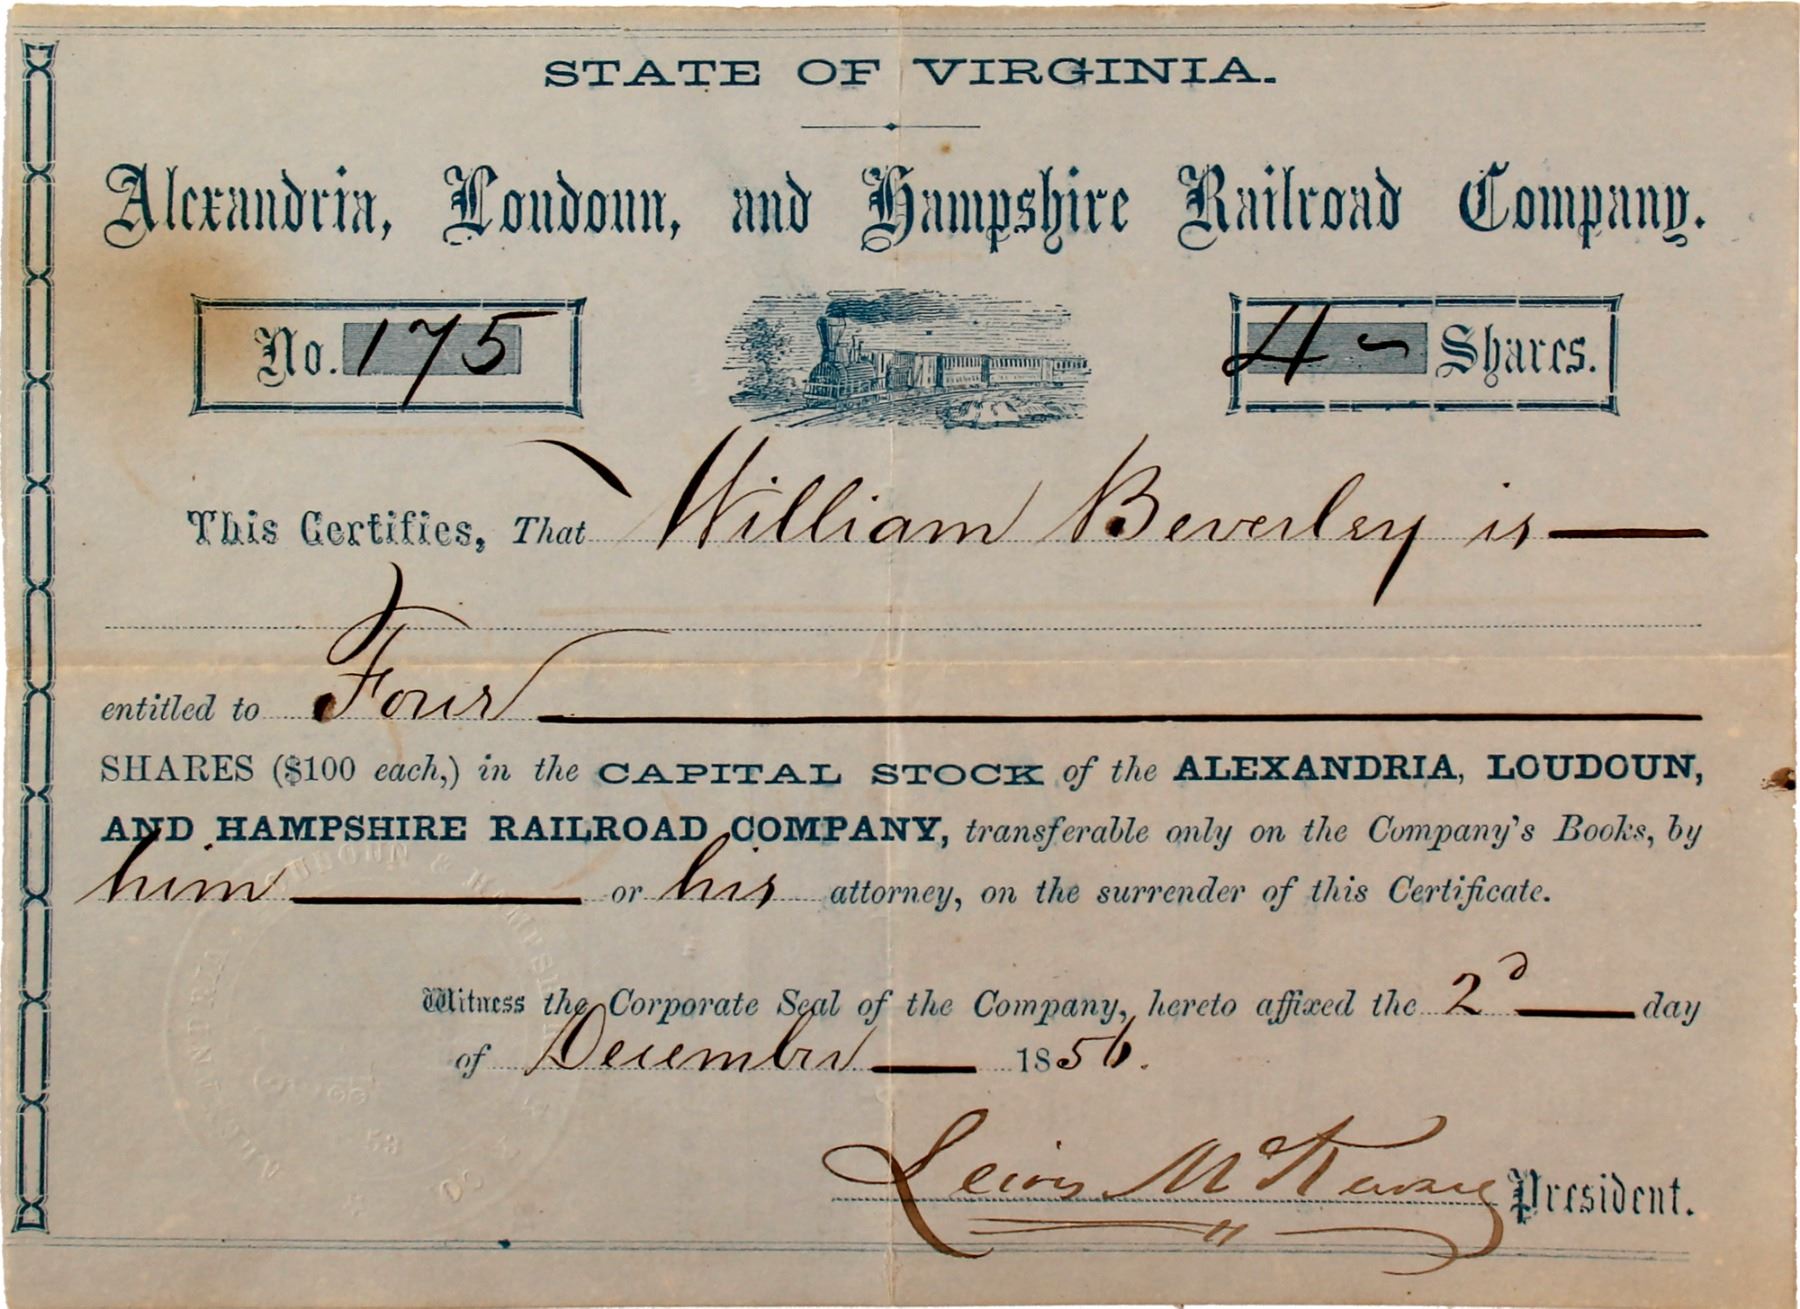 STATE OF VIRGINIA.
Alexandria, Loudoun, and Hampshire Railroad Company.
No. 175
4 Shares.
This Certifies, That William Beverley is
entitled to Four
SHARES ($100 each,) in the CAPITAL STOCK of the ALEXANDRIA, LOUDOUN,
AND HAMPSHIRE RAILROAD COMPANY, transferable only on the Company's Books, by
him or his attorney, on the surrender of this Certificate.
Witness the Corporate Seal of the Company, hereto affixed the 2d day
of December 1856.
Lewis McKenzie President.
LOUDOUN & HAMPSHIRE
53